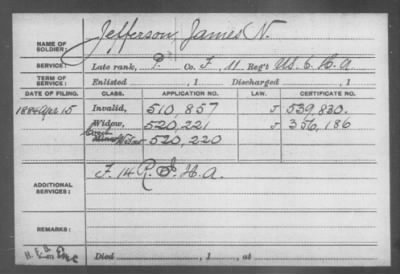 NAME OF SOLDIER: Jefferson, James N.
SERVICE: Late rank, P. Co. F, 11 Reg't U.S. C. H. A.
TERM OF SERVICE: Enlisted , 1 Discharged , 1
DATE OF FILING. CLASS. APPLICATION NO. LAW. CERTIFICATE NO.
1884 15 Invalid, 510,857 J 539,830.
Widow, 520,221 J 356,186
520,220
ADDITIONAL SERVICES: F. 14 R. I. H. A.
REMARKS:
Died , 1 , at